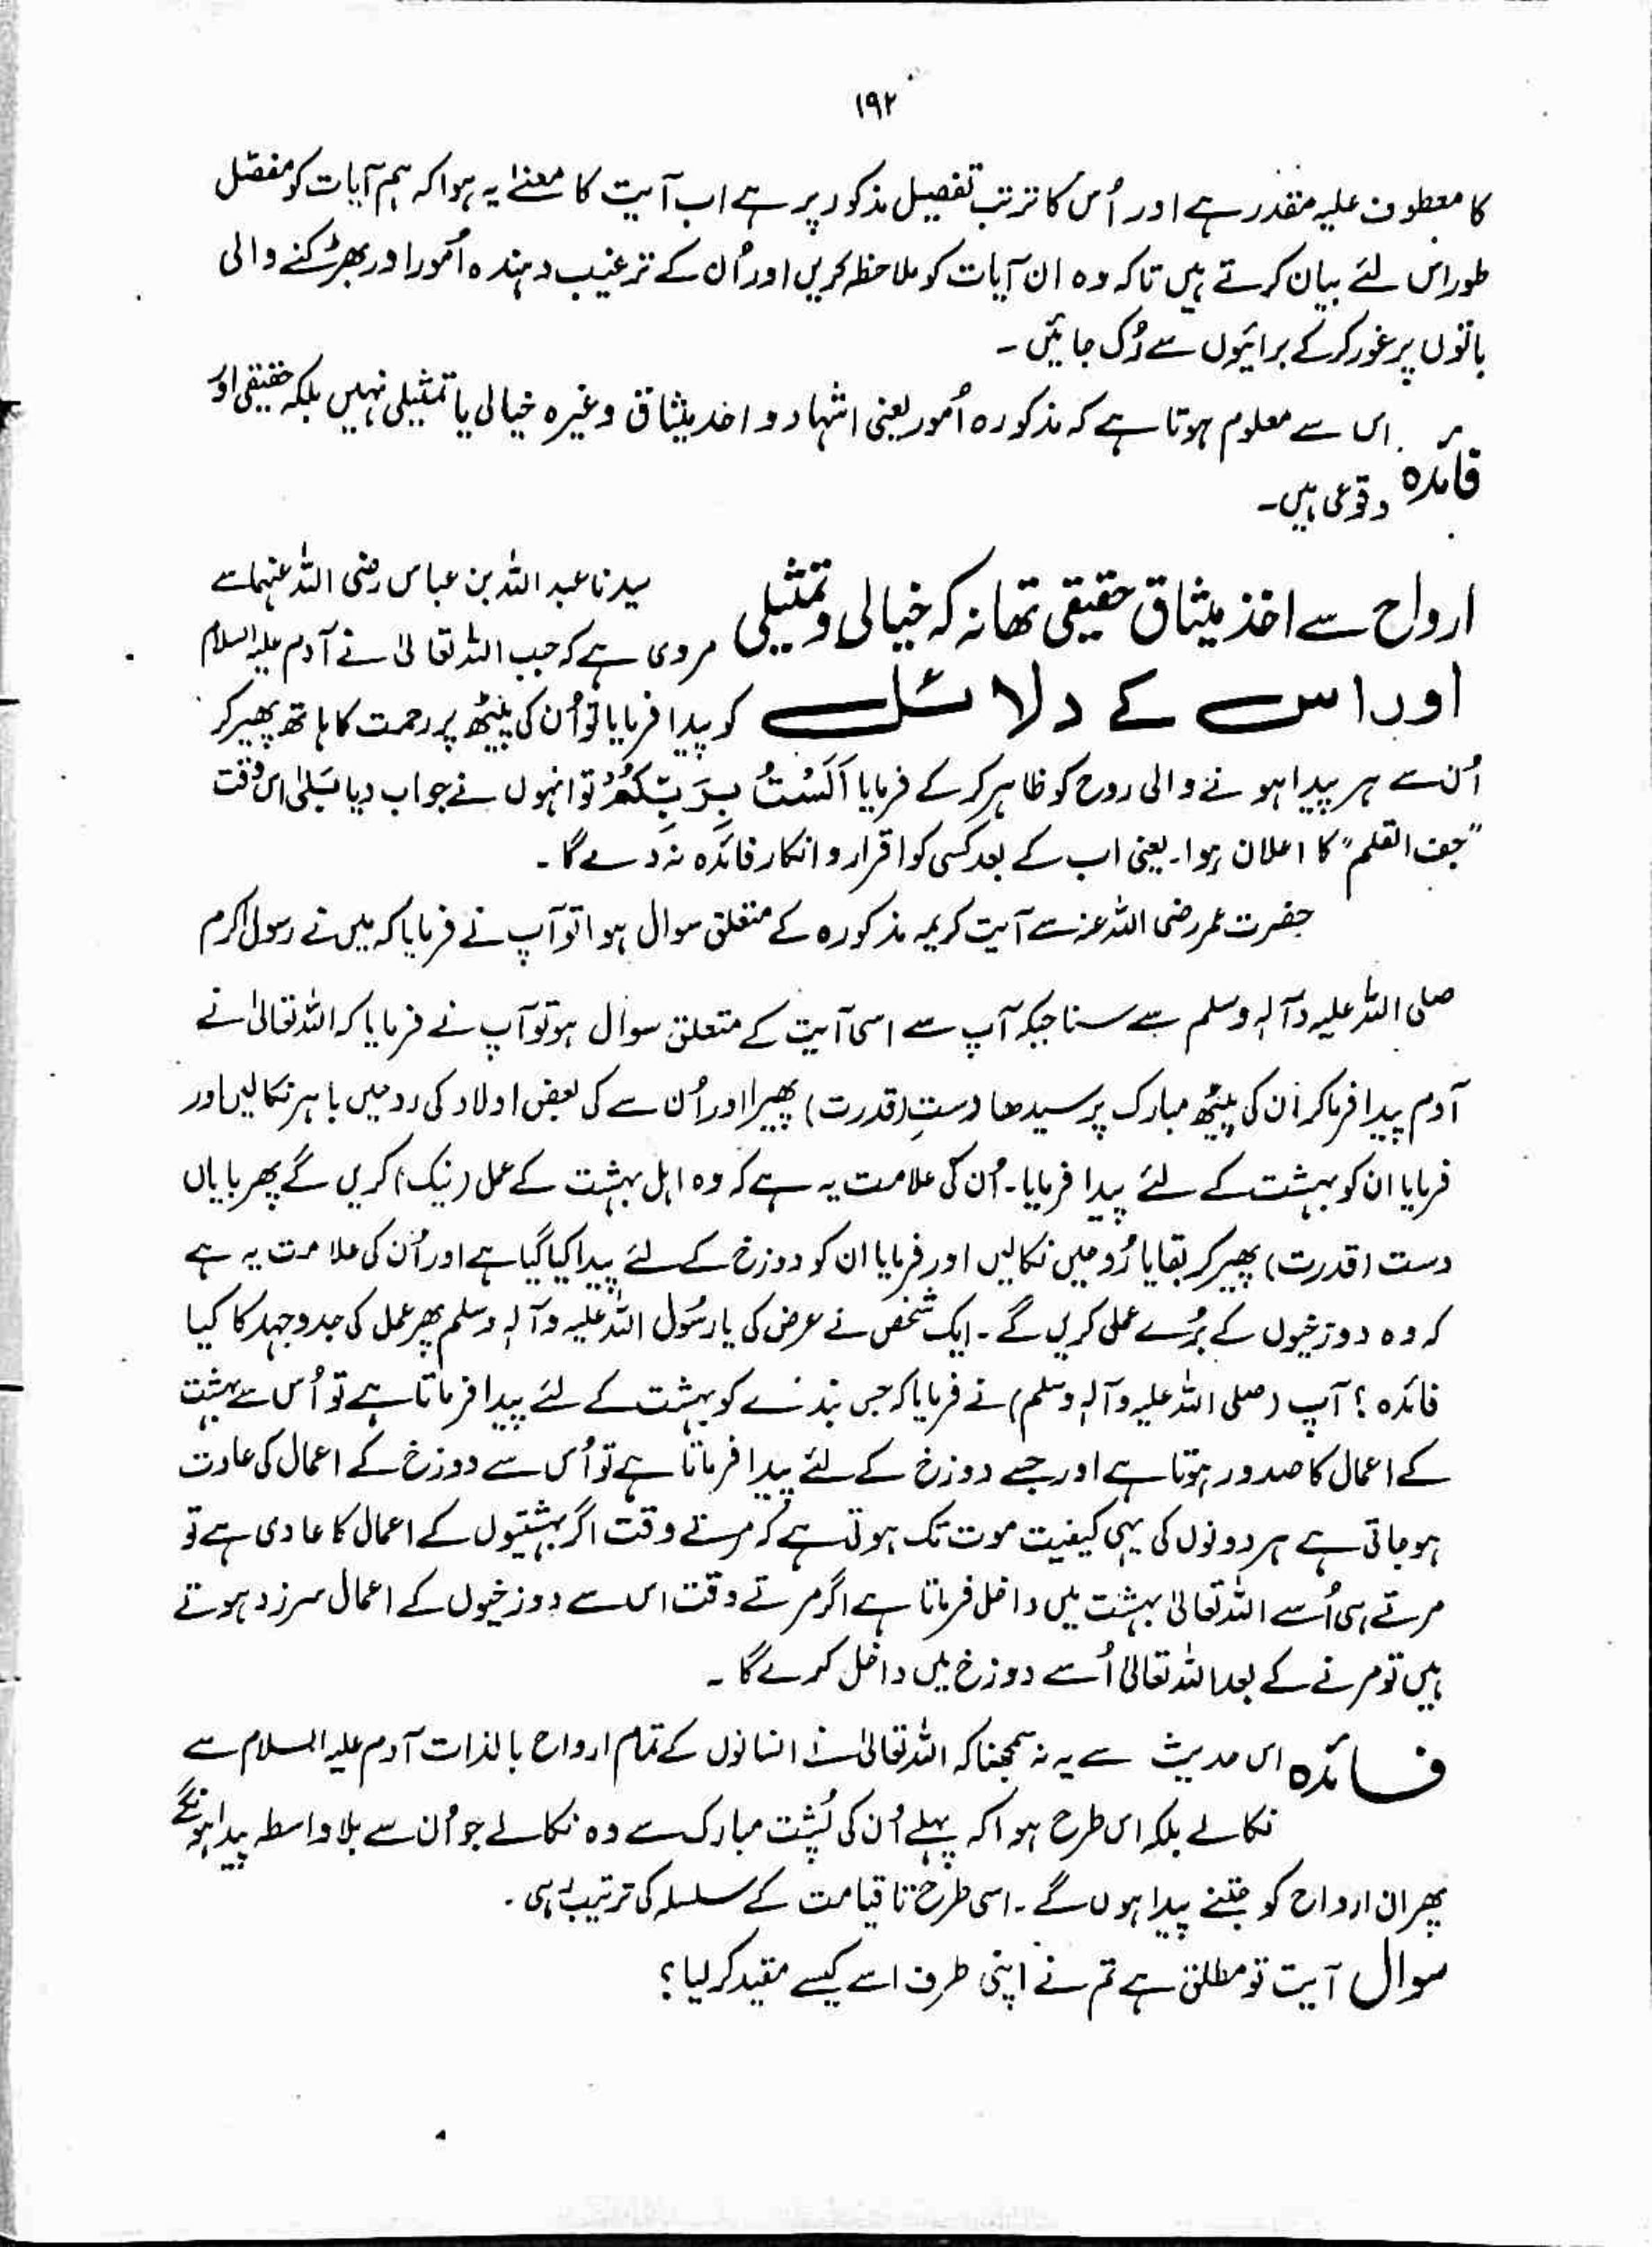 ۱۹۲
کا معطوف علیہ مقدر ہے اور اُس کا ترتب تفصیل مذکور پر ہے اب آیت کا معنے یہ ہوا کہ ہم آیات کو مفصّل
طور اس لئے بیان کرتے ہیں تاکہ وہ ان آیات کو ملاحظہ کریں اور اُن کے ترغیب دہندہ اُمور اور بھڑکنے والی
باتوں پر غور کر کے برائیوں سے رُک جائیں ۔
فائدہ اس سے معلوم ہوتا ہے کہ مذکورہ اُمور یعنی اشہاد و اخذ میثاق وغیرہ خیالی یا تمثیلی نہیں بلکہ حقیقی اور
وقوعی ہیں۔
ارواح سے اخذ میثاق حقیقی تھا نہ کہ خیالی و تمثیلی
اور اس کے دلائل
سیدنا عبد اللہ بن عباس رضی اللہ عنہما سے
مروی ہے کہ جب اللہ تعالیٰ نے آدم علیہ السلام
کو پیدا فرمایا تو اُن کی پیٹھ پر رحمت کا ہاتھ پھیر کر
اُن سے ہر پیدا ہونے والی روح کو ظاہر کر کے فرمایا اَلَسْتُ بِرَبِّكُمْ تو انہوں نے جواب دیا بَلٰی اس وقت
”جف القلم“ کا اعلان ہوا۔ یعنی اب کے بعد کسی کو اقرار و انکار فائدہ نہ دے گا ۔
حضرت عمر رضی اللہ عنہ سے آیت کریمہ مذکورہ کے متعلق سوال ہوا تو آپ نے فرمایا کہ میں نے رسول اکرم
صلی اللہ علیہ وآلہ وسلم سے سنا جبکہ آپ سے اسی آیت کے متعلق سوال ہو تو آپ نے فرمایا کہ اللہ تعالیٰ نے
آدم پیدا فرما کر اُن کی پیٹھ مبارک پر سیدھا دستِ (قدرت) پھیرا اور اُن سے کی بعض اولاد کی روحیں باہر نکالیں اور
فرمایا ان کو بہشت کے لئے پیدا فرمایا ۔ اُن کی علامت یہ ہے کہ وہ اہل بہشت کے عمل (نیک) کریں گے پھر بایاں
دست (قدرت) پھیر کر بقایا رُوحیں نکالیں اور فرمایا ان کو دوزخ کے لئے پیدا کیا گیا ہے اور اُن کی علامت یہ ہے
کہ وہ دوزخیوں کے بُرے عمل کریں گے ۔ ایک شخص نے عرض کی یا رسُول اللہ علیہ وآلہ وسلم پھر عمل کی جدوجہد کا کیا
فائدہ ؟ آپ (صلی اللہ علیہ وآلہ وسلم) نے فرمایا کہ جس بندے کو بہشت کے لئے پیدا فرماتا ہے تو اُس سے بہشت
کے اعمال کا صدور ہوتا ہے اور جسے دوزخ کے لئے پیدا فرماتا ہے تو اُس سے دوزخ کے اعمال کی عادت
ہو جاتی ہے ہر دونوں کی یہی کیفیت موت تک ہوتی ہے کہ مرتے وقت اگر بہشتیوں کے اعمال کا عادی ہے تو
مرتے ہی اُسے اللہ تعالیٰ بہشت میں داخل فرماتا ہے اگر مرتے وقت اس سے دوزخیوں کے اعمال سرزد ہوتے
ہیں تو مرنے کے بعد اللہ تعالیٰ اُسے دوزخ میں داخل کرے گا ۔
فائدہ اس حدیث سے یہ نہ سمجھنا کہ اللہ تعالیٰ نے انسانوں کے تمام ارواح بالذات آدم علیہ السلام سے
نکالے بلکہ اس طرح ہوا کہ پہلے اُن کی پُشت مبارک سے وہ نکالے جو اُن سے بلاواسطہ پیدا ہونگے
پھر ان ارواح کو جتنے پیدا ہوں گے ۔ اسی طرح تا قیامت کے سلسلہ کی ترتیب ہی ۔
سوال آیت تو مطلق ہے تم نے اپنی طرف اسے کیسے مقید کر لیا ؟